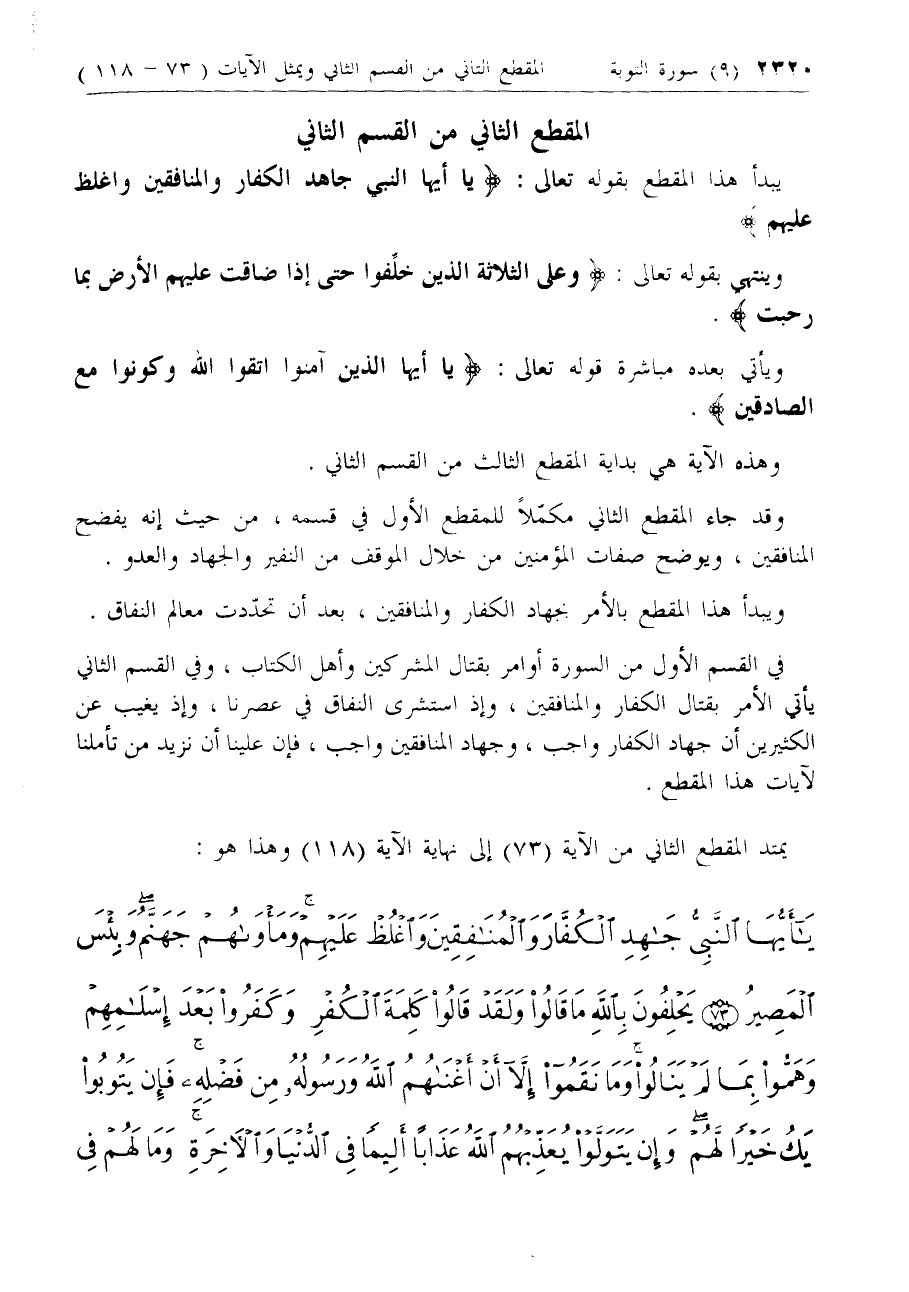 ٢٣٢٠ (٩) سورة التوبة المقطع الثاني من القسم الثاني ويمثل الآيات ( ٧٣ – ١١٨ )
المقطع الثاني من القسم الثاني
يبدأ هذا المقطع بقوله تعالى : ﴿ يا أيها النبي جاهد الكفار والمنافقين واغلظ
عليهم ﴾
وينتهي بقوله تعالى : ﴿ وعلى الثلاثة الذين خلّفوا حتى إذا ضاقت عليهم الأرض بما
رحبت ﴾ .
ويأتي بعده مباشرة قوله تعالى : ﴿ يا أيها الذين آمنوا اتقوا الله وكونوا مع
الصادقين ﴾ .
وهذه الآية هي بداية المقطع الثالث من القسم الثاني .
وقد جاء المقطع الثاني مكمّلاً للمقطع الأول في قسمه ، من حيث إنه يفضح
المنافقين ، ويوضح صفات المؤمنين من خلال الموقف من النفير والجهاد والعدو .
ويبدأ هذا المقطع بالأمر بجهاد الكفار والمنافقين ، بعد أن تحدّدت معالم النفاق .
في القسم الأول من السورة أوامر بقتال المشركين وأهل الكتاب ، وفي القسم الثاني
يأتي الأمر بقتال الكفار والمنافقين ، وإذ استشرى النفاق في عصرنا ، وإذ يغيب عن
الكثيرين أن جهاد الكفار واجب ، وجهاد المنافقين واجب ، فإن علينا أن نزيد من تأملنا
لآيات هذا المقطع .
يمتد المقطع الثاني من الآية (٧٣) إلى نهاية الآية (١١٨) وهذا هو :
يَٰٓأَيُّهَا ٱلنَّبِيُّ جَٰهِدِ ٱلْكُفَّارَ وَٱلْمُنَٰفِقِينَ وَٱغْلُظْ عَلَيْهِمْ ۚ وَمَأْوَىٰهُمْ جَهَنَّمُ ۖ وَبِئْسَ
ٱلْمَصِيرُ ﴿٧٣﴾ يَحْلِفُونَ بِٱللَّهِ مَا قَالُوا۟ وَلَقَدْ قَالُوا۟ كَلِمَةَ ٱلْكُفْرِ وَكَفَرُوا۟ بَعْدَ إِسْلَٰمِهِمْ
وَهَمُّوا۟ بِمَا لَمْ يَنَالُوا۟ ۚ وَمَا نَقَمُوٓا۟ إِلَّآ أَنْ أَغْنَىٰهُمُ ٱللَّهُ وَرَسُولُهُۥ مِن فَضْلِهِۦ ۚ فَإِن يَتُوبُوا۟
يَكُ خَيْرًا لَّهُمْ ۖ وَإِن يَتَوَلَّوْا۟ يُعَذِّبْهُمُ ٱللَّهُ عَذَابًا أَلِيمًا فِى ٱلدُّنْيَا وَٱلْءَاخِرَةِ ۚ وَمَا لَهُمْ فِى